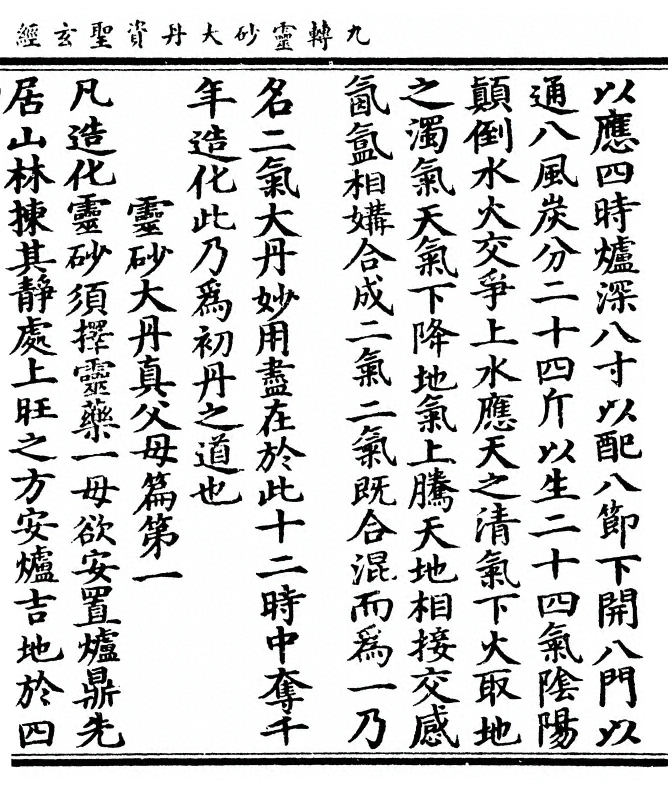 九轉靈砂大丹資聖玄經
以應四時爐深八寸以配八節下開八門以
通八風炭分二十四斤以生二十四氣陰陽
顛倒水火交爭上水應天之清氣下火取地
之濁氣天氣下降地氣上騰天地相接交感
氤氳相媾合成二氣二氣既合混而爲一乃
名二氣大丹妙用盡在於此十二時中奪千
年造化此乃爲初丹之道也
靈砂大丹真父母篇第一
凡造化靈砂須擇靈藥一母欲安置爐鼎先
居山林揀其靜處上旺之方安爐吉地於四